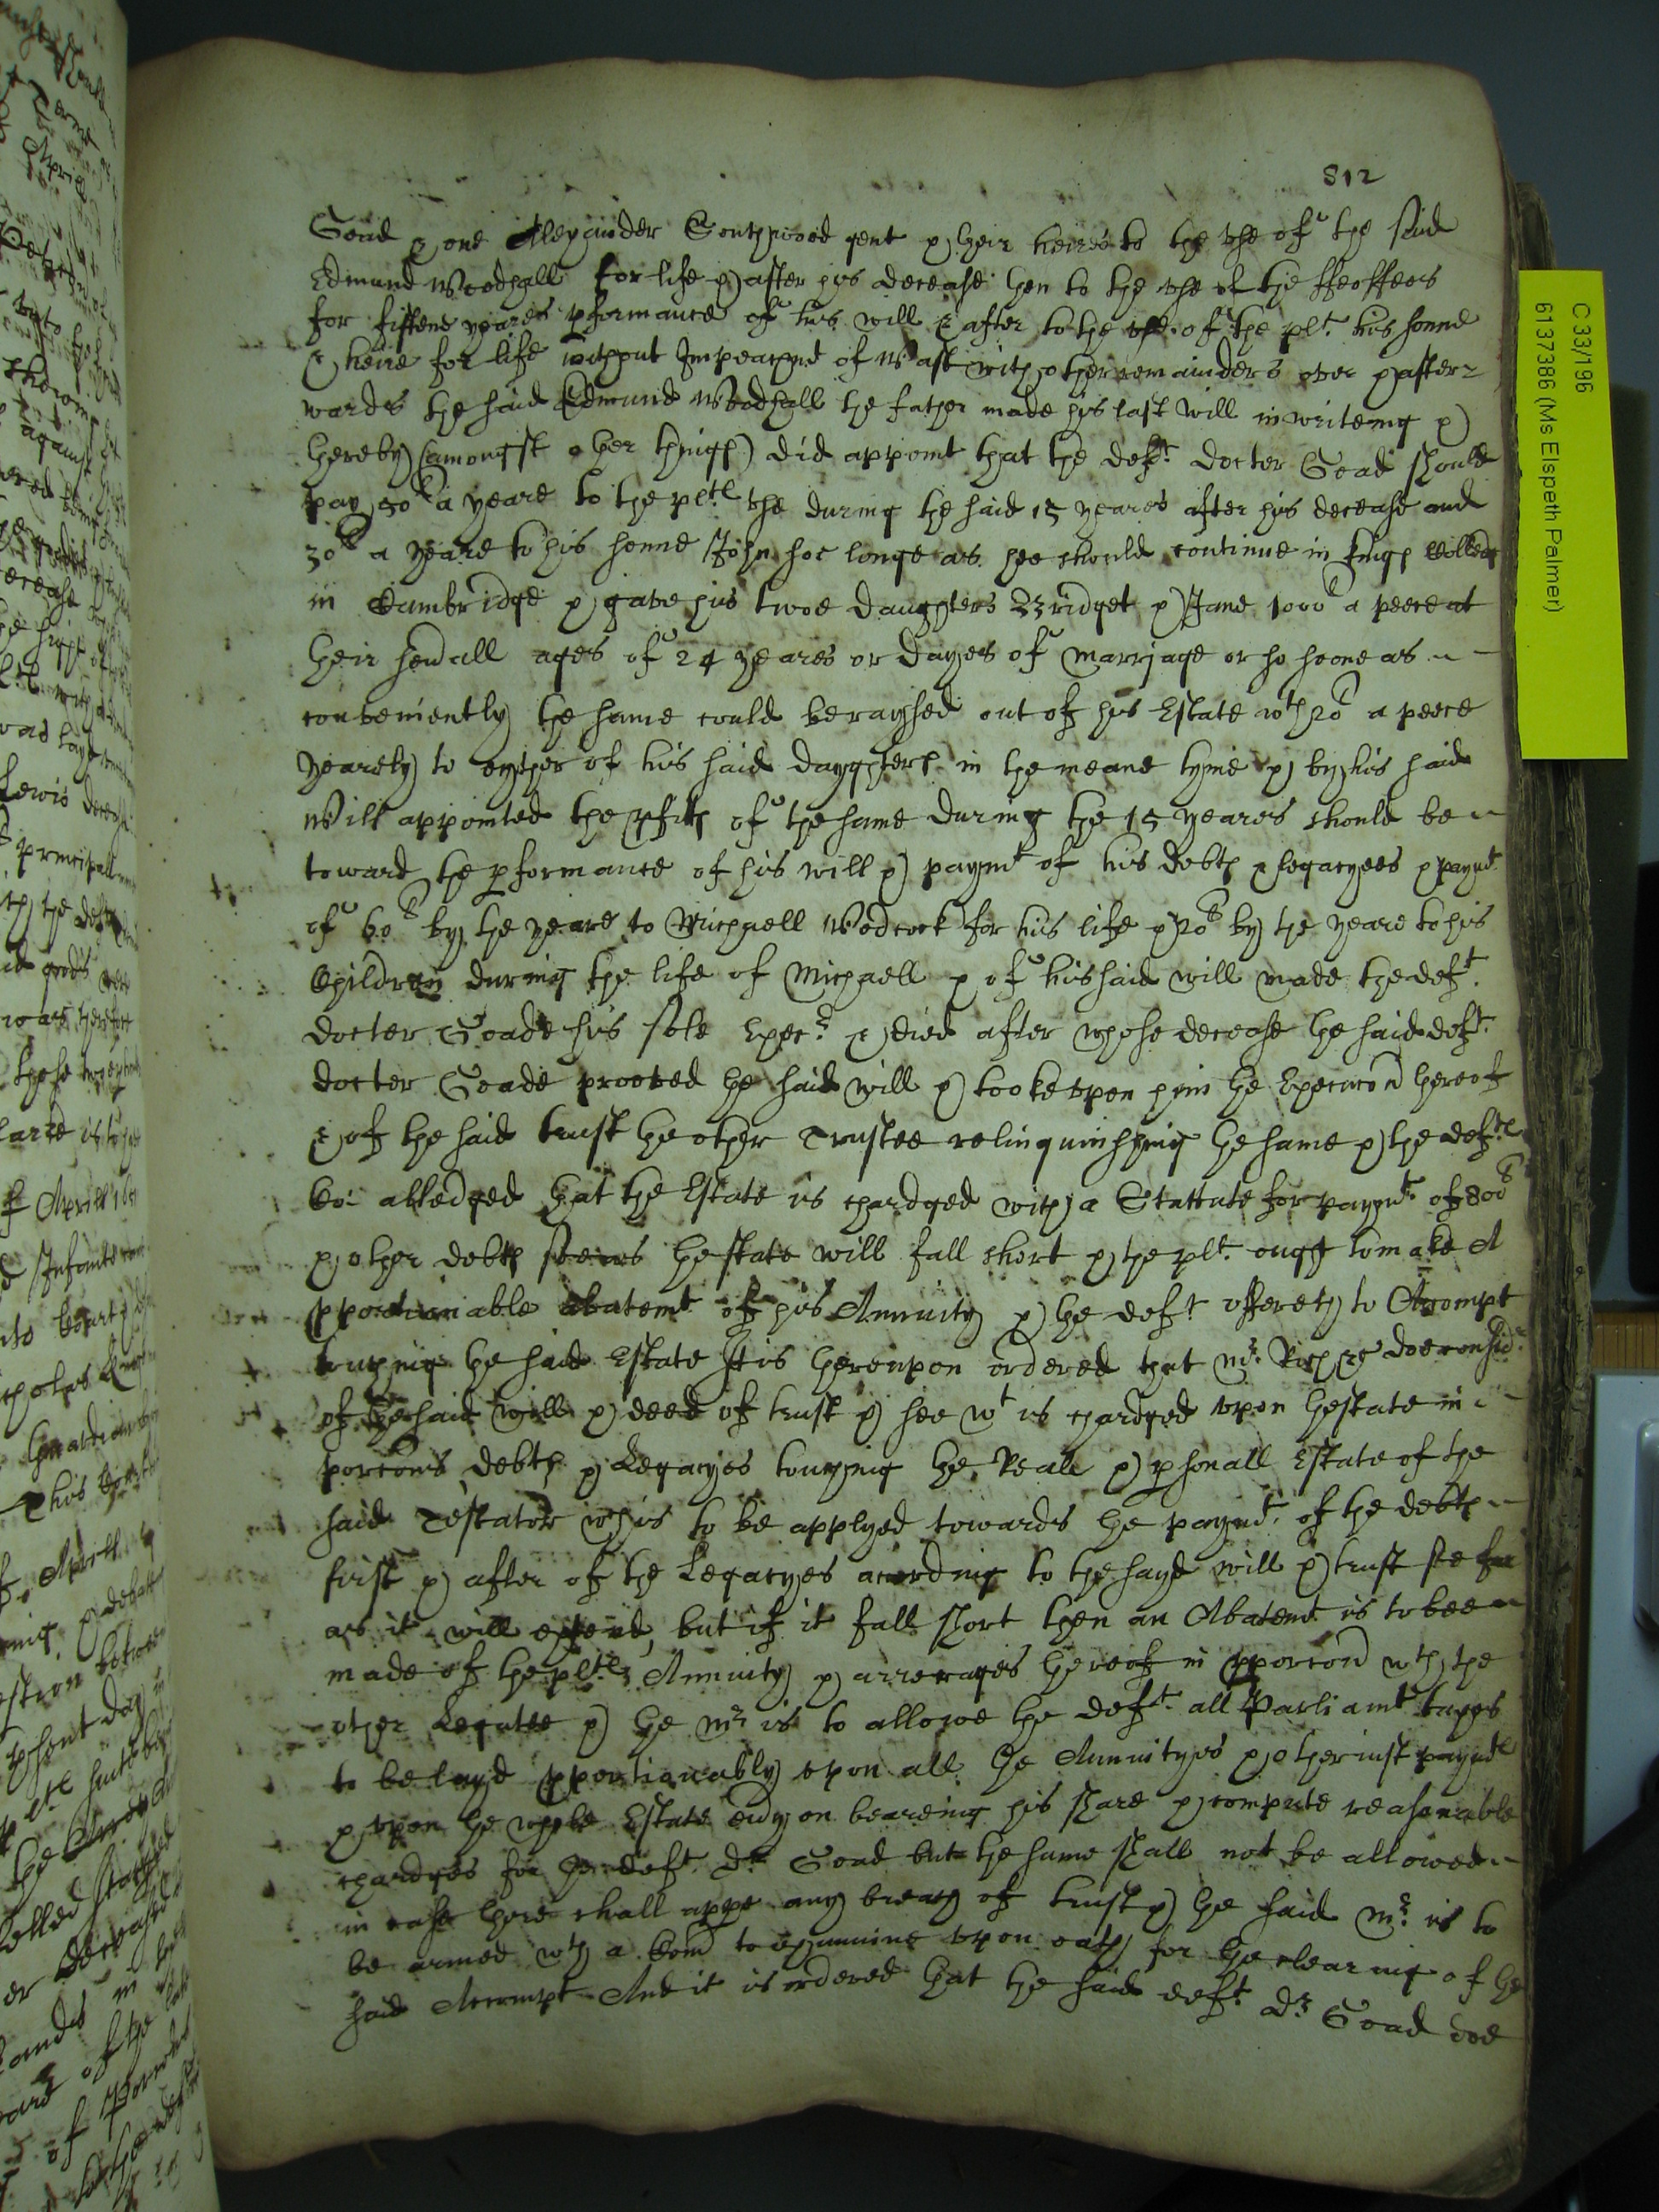 812
Goad & one Allexander Southwood gent & their heires to the use of the said
Edmund Woodhall for life & after his decease then to the use of the ffeoffees
for fiftene yeares pformance of his will & after to the use of the plt. his sonne
& heire for life without Impeachmt of Wast with other remainders over & after=
wards the said Edmund Woodhall the father made his last Will in writeing &
thereby (amongst other things) did appoint that the deft. Docter Goad should
pay 50l a yeare to the pltl the during the said 15 yeares after his decease and
30l a yeare to his sonne John soe longe as hee should continue in Kings Colledg
in Cambridge & gave his twoe daughters Bridget & Jane 1000l a peece at
their severall ages of 24 yeares or dayes of marriage or so soone as
conveniently the same could be raysed out of his Estate wth 20l a peece
yearely to eyther of his said daughters in the meane tyme & by his said
Will appointed the pfitts of the same during the 15 yeares should be
toward the pformance of his will & paymt of his debts & legacyes & paymt
of 60l by the yeare to Michaell Wodcock for his life & 20l by the yeare to his
Children during the life of Michaell & of his said will made the deft.
Docter Goade his sole Execr & died after whose decease the said deft.
docter Goade prooved the said will & tooke upon him the Execucon thereof
& of the said trust the other Trustee relinquinshing the same & the deftl
Co: alledged that the Estate is chardged with a Stattute for paymt. of 800l
& other debts soe as thestate will fall short & the plt. ought to make A
pportionable abatemt of his Annuity & the deft offereth to Accompt
touching the said Estate It is thereupon ordered that mr. Rich re doe consid
of the said will & deed of trust & see wt is chardged upon thestate in
porcons debts & Legacyes touching the Reale & psonall Estate of the
said Testator wch is to be applyed towards the paymt. of the debts
first & after of the Legacyes according to the sayd will & trust soe far
as it will extend, but if it fall short then an Abatemt is to bee
made of the pltls Annuity & arrerages thereof in pporcon wth the
other Legatee & the mr is to allowe the deft. all Parliamt taxes
to be layd pportionably upon all the Annuityes & other iust paymts
& upon the whole Estate evry on beareing his share & compute reasonable
chardges for the deft. Dr Goad but the same shall not be allowed
in case there shall appe any breach of trust & the said mr. is to
be armed wth a Comn to examine upon oath for the clearing of the
said Accompt And it is ordered that the said deft Dr Goad doe
C 33/196
6137386 (Ms Elspeth Palmer)